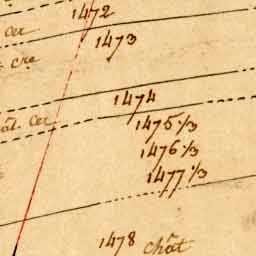 1472
cer
1473
cre
1474
ât. cer
1475 1/3
1476 1/3
1477 1/3
1478 chât